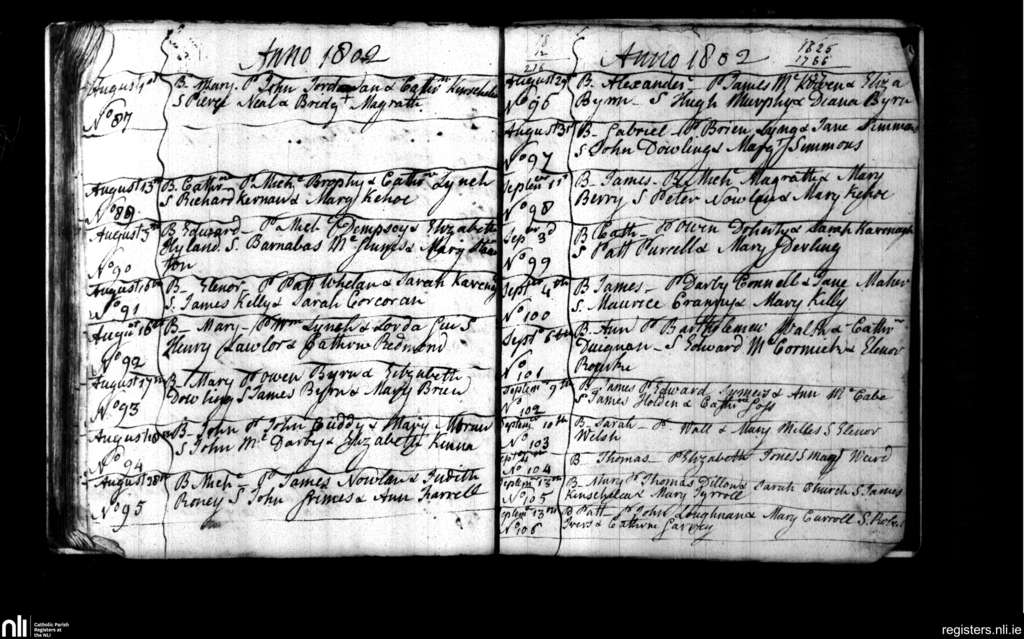 Anno 1802
August 4th
No 87
B. Mary P John Jordan an & Cathn Kinschela
S Pierce Neal & Bridgt Magrath
August 13th
No 89
B. Cathn P Michl Brophy & Cathn Lynch
S Richard Kernan & Mary Kehoe
August
No 90
B. Edward Dempsey & Elizabeth
Hyland S. Barnabas
ton
August 16th
No 91
B. Elenor P Patt Whelan & Sarah
S. James Kelly & Sarah Corcoran
August 16th
No 92
B. Mary P Wm Lynch &
Henry Lawlor & Cathrn Redmond
August 17th
No 93
B. Mary P Owen Byrn & Elizabeth
Dowling S James Byrn & Mary Brien
August
No 94
B. John P John Cuddy & Mary
S John Mc Darby & Elizabeth Kenna
August 28th
No 95
B. Michl P James Nowlan & Judith
Roney S John Grimes & Ann Farrell
Anno 1802
1826
1766
August 29
No 96
B. Alexander P James Mc & Eliza
Byrn S Hugh Murphy & Deana Byrn
August 31st
No 97
B. Gabriel P Brien Lyng & Jane Simmons
S John Dowling & Margt Simmons
No 98
B. James P Michl Magrath & Mary
Berry S Peter Nowlan & Mary Kehoe
Sepbr 3d
No 99
B Cath P Owen Doherty & Sarah Kavenagh
S Patt Purcell & Mary Derling
Septr 4th
No 100
B. James P Darby Connell & Jane Maher
S. Maurice & Mary Kelly
Septr 6th
No 101
B. Ann P Bartholomew Walsh & Cathrn
Duignan S Edward Mc Cormick & Elenor
Rourke
Septem 9th
No 102
B James P Edward & Ann Mc Cabe
S James Holden & Cathn Goss
Septem 10th
No 103
B. Sarah P Wall & Mary Milles S Elenor
Welsh
No 104
B. Thomas P Elizabeth Jones S Mary Ward
Septem 13th
No 105
B Mary P Thomas Dillon & Sarah Church S James
Kinschelea & Mary Tyrroll
Septem 13th
No 106
B Patt P John Loughnan & Mary Carroll S.
& Cathrn Garvey
nli
Catholic Parish
Registers at
the NLI
registers.nli.ie